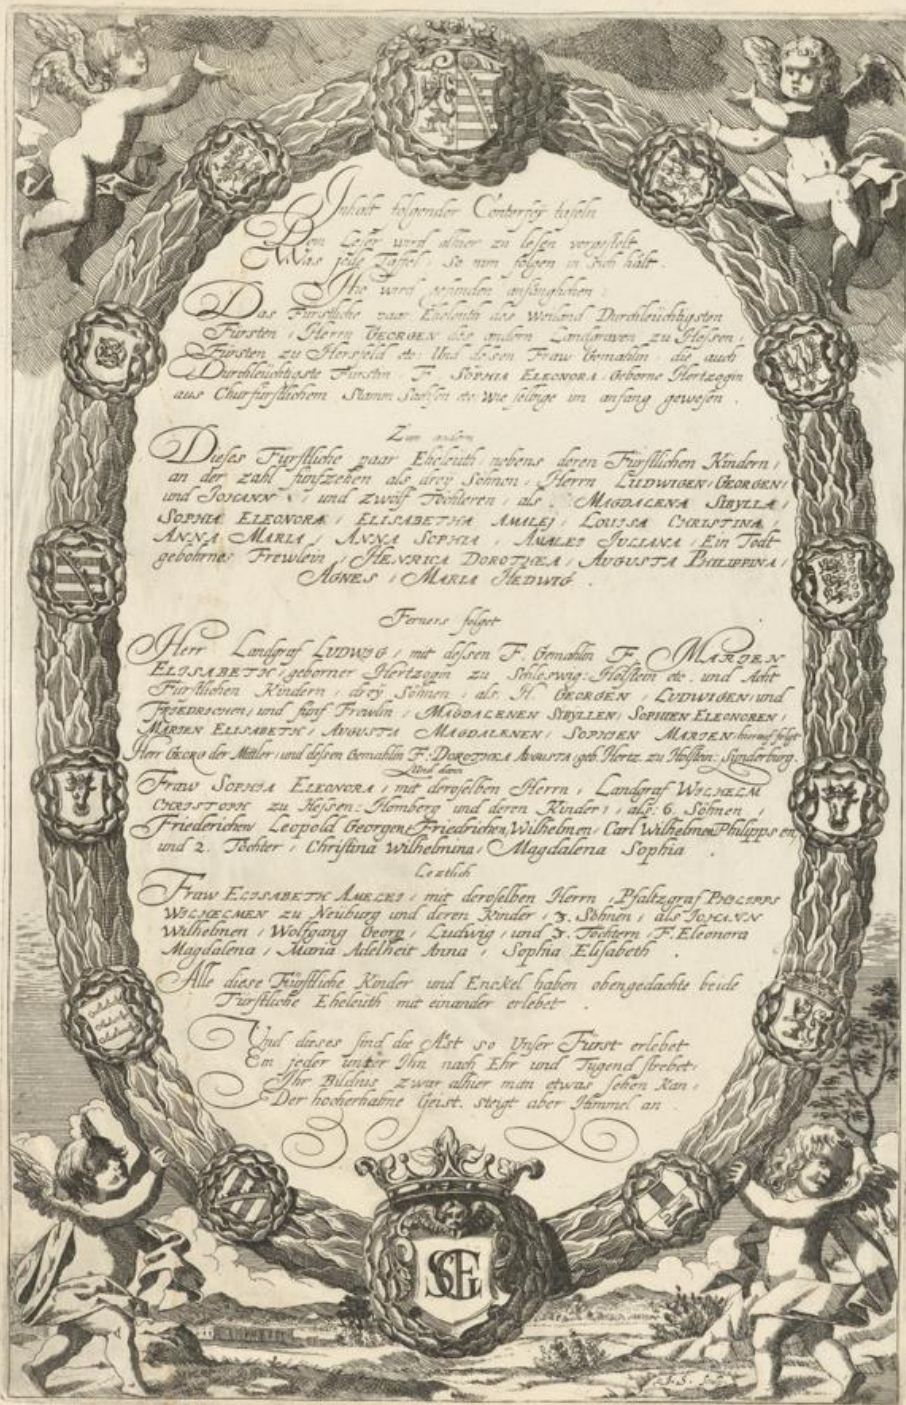 Inhalt folgender Conterfey tafeln
Dem Leser wird alhier zu lesen vorgestelt
Was jede Taffel, so nun folgen in sich hält.
Hie werd gefunden anfänglichen:
Das Fürstliche paar Eheleuth des Weiland Durchleuchtigsten
Fürsten, Herrn GEORGEN des andern Landgraven zu Hessen,
Fürsten zu Hersfeld etc. Und dessen Fraw Gemahlin, die auch
Durchleuchtigste Fürstin F. SOPHIA ELEONORA, Geborne Hertzogin
aus Churfürstlichem Stamm Sachsen etc. Wie selbige im anfang gewesen.
Zum andern
Dieses Fürstliche paar Eheleuth, nebens deren Fürstlichen Kindern,
an der zahl funfzehen als drey Söhnen, Herrn LUDWIGEN, GEORGEN,
und JOHANN, und zwölf Töchteren, als, MAGDALENA SIBYLLA,
SOPHIA ELEONORA, ELISABETHA AMALEJ, LOUISA CHRISTINA,
ANNA MARIA, ANNA SOPHIA, AMALEJ JULIANA, Ein Todt
gebohrnes Frewlein, HENRICA DOROTHEA, AUGUSTA PHILIPPINA,
AGNES, MARIA HEDWIG.
Ferners folget
Herr Landgraf LUDWIG, mit dessen F. Gemahlin F. MARIEN
ELISABETH, geborner Hertzogin zu Schleswig: Holstein etc. und Acht
Fürstlichen Kindern, drey Söhnen, als, H. GEORGEN, LUDWIGEN, und
FRIEDRICHEN, und fünf Frewlin, MAGDALENEN SIBYLLEN, SOPHIEN ELEONOREN,
MARIEN ELISABETH, AUGUSTA MAGDALENEN, SOPHIEN MARIEN, hierauf folgt
Herr GEORG der Mitler, und dessen Gemahlin F. DOROTHEA AUGUSTA geb. Hertz. zu Holstein: Sunderburg.
Und dann
Fraw SOPHIA ELEONORA, mit deroselben Herrn, Landgraf WILHELM
CHRISTOPH zu Hessen: Homberg und deren Kinder, als, 6. Söhnen,
Friederichen, Leopold Georgen, Friedrichen, Wilhelmen, Carl Wilhelmen, Philippsen,
und 2. Töchter, Christina Wilhelmina, Magdalena Sophia.
Letztlich
Fraw ELISABETH AMELEJ, mit deroselben Herrn, Pfaltzgraf PHILIPPS
WILHELMEN zu Neuburg und deren Kinder, 3. Söhnen, als JOHANN
Wilhelmen, Wolfgang Georg, Ludwig, und 3. Töchtern, F. Eleonora
Magdalena, Maria Adelheit Anna, Sophia Elisabeth.
Alle diese Fürstliche Kinder und Enckel haben obengedachte beide
Fürstliche Eheleuth mit einander erlebet.
Und dieses sind die Äst so Unser Fürst erlebet
Ein jeder unter Ihn nach Ehr und Tugend strebet,
Ihr Bildnus zwar alhier man etwas sehen kan,
Der hocherhabne Geist, steigt aber Himmel an.